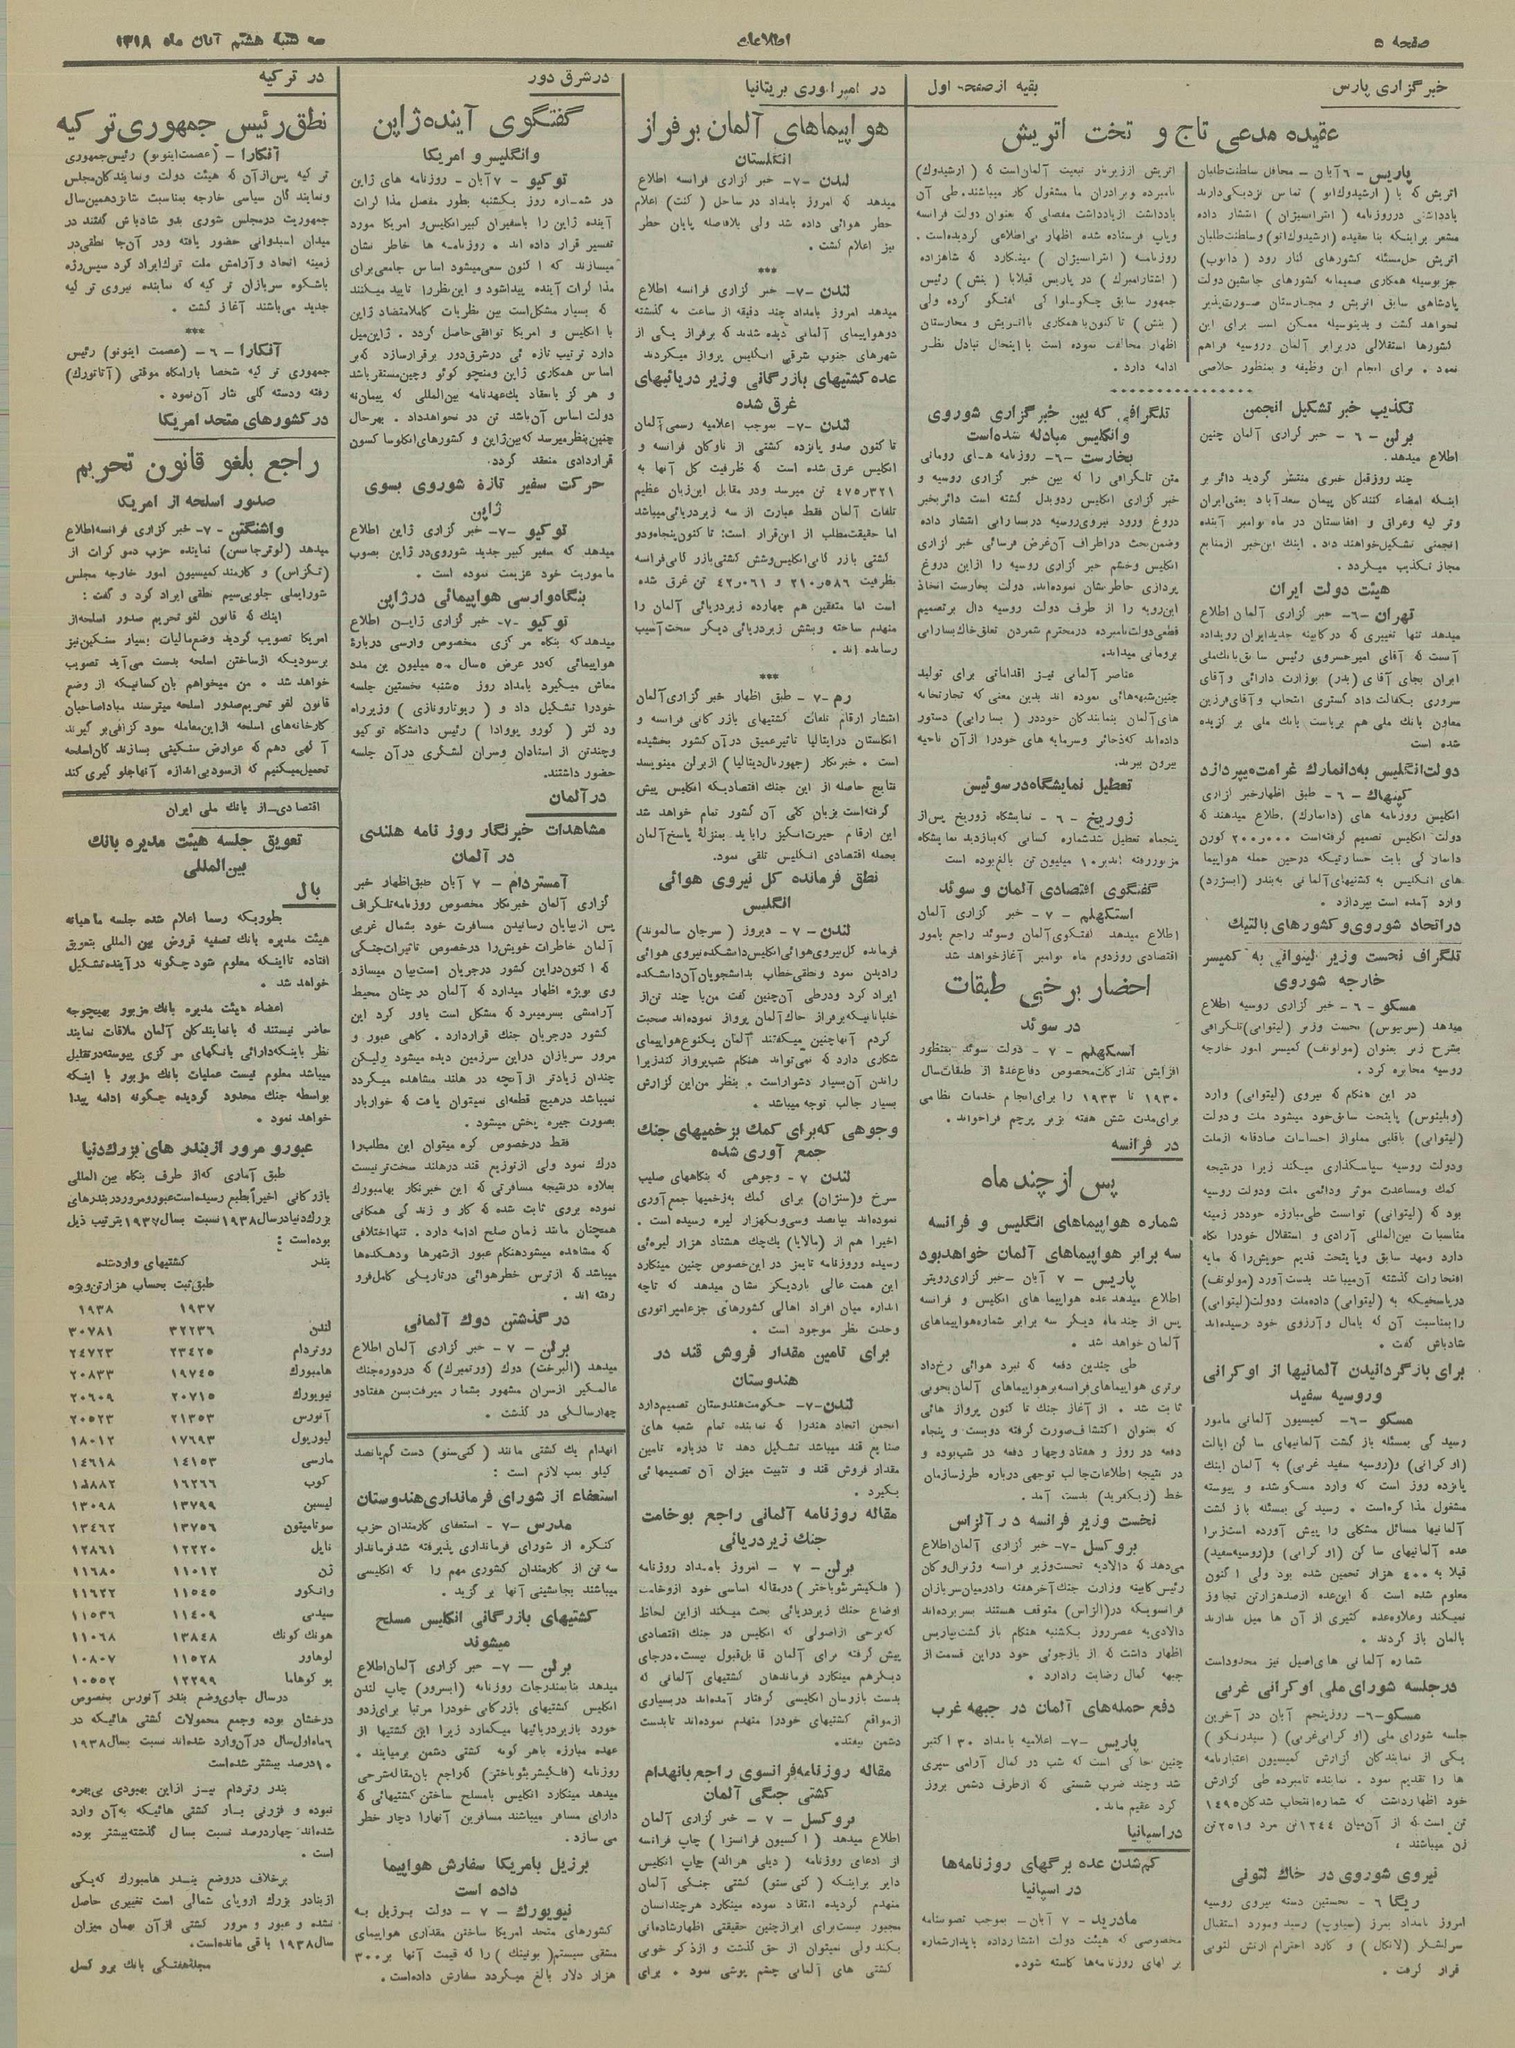 صفحه ۵
اطلاعات
سه شنبه هشتم آبان ماه ۱۳۱۸
خبرگزاری پارس
بقیه از صفحه اول
عقیده مدعی تاج و تخت اتریش
پاریس - ۶ آبان - محافل سلطنت طلبان
اتریش که با (ارشیدوک اتو) تماس نزدیکی دارند
یادداشتی در روزنامه (انترانسیژان) انتشار داده
مشعر بر اینکه بنا بعقیده (ارشیدوک اتو) و سلطنت طلبان
اتریش حل مسئله کشورهای کنار رود (دانوب)
جز بوسیله همکاری صمیمانه کشورهای جانشین دولت
پادشاهی سابق اتریش و مجارستان صورت پذیر
نخواهد گشت و بدینوسیله ممکن است برای این
کشورها استقلالی در برابر آلمان و روسیه فراهم
نمود . برای انجام این وظیفه و بمنظور خلاصی
اتریش از زیر بار تبعیت آلمان است که (ارشیدوک)
نامبرده و برادران ما مشغول کار میباشند. طی آن
یادداشت از یادداشت مفصلی که بعنوان دولت فرانسه
و پاپ فرستاده شده اظهار بی اطلاعی گردیده است.
روزنامه (انترانسیژان) مینگارد که شاهزاده
(اشتارامبرک) در پاریس قبلا با (بنش) رئیس
جمهور سابق چکوسلواکی گفتگو کرده ولی
(بنش) تاکنون با همکاری با اتریش و مجارستان
اظهار مخالفت نموده است با اینحال تبادل نظر
ادامه دارد .
تکذیب خبر تشکیل انجمن
برلن - ۶ - خبرگزاری آلمان چنین
اطلاع میدهد.
چند روز قبل خبری منتشر گردید دائر بر
اینکه امضاء کنندگان پیمان سعدآباد یعنی ایران
و ترکیه و عراق و افغانستان در ماه نوامبر آینده
انجمنی تشکیل خواهند داد. اینک این خبر از منابع
مجاز تکذیب میگردد .
هیئت دولت ایران
تهران -۶- خبر گزاری آلمان اطلاع
میدهد تنها تغییری که در کابینه جدید ایران رویداده
آنست که آقای امیرخسروی رئیس سابق بانک ملی
ایران بجای آقای (بدر) بوزارت دارائی و آقای
سروری بکفالت دادگستری انتخاب و آقای فرزین
معاون بانک ملی هم بریاست بانک ملی برگزیده
شده است
دولت انگلیس به دانمارک غرامت میپردازد
کپنهاک - ۶ - طبق اظهار خبر گزاری
انگلیس روزنامه های (دانمارک) اطلاع میدهند که
دولت انگلیس تصمیم گرفته است ۲۰۰ر۰۰۰ کورن
دانمارکی بابت خسارتیکه در حین حمله هواپیما
های انگلیس به کشتیهای آلمانی به بندر (ابسژرد)
وارد آمده است بپردازد .
در اتحاد شوروی و کشورهای بالتیک
تلگراف نخست وزیر لیتوانی به کمیسر
خارجه شوروی
مسکو - ۶ - خبر گزاری روسیه اطلاع
میدهد نخست وزیر (لیتوانی) تلگرافی
بشرح زیر بعنوان (مولوتف) کمیسر امور خارجه
روسیه مخابره کرد .
در این هنگام که نیروی (لیتوانی) وارد
(ویلنیوس) پایتخت سابق خود میشود ملت و دولت
(لیتوانی) باقلبی مملو از احساسات صادقانه از ملت
و دولت روسیه سپاسگذاری میکند زیرا در نتیجه
کمک و مساعدت موثر و دائمی ملت و دولت روسیه
بود که (لیتوانی) توانست طی مبارزه خود در زمینه
مناسبات بین المللی آزادی و استقلال خود را نگاه
دارد و مهد سابق و پایتخت قدیم خویش را که مایه
افتخارات گذشته آن میباشد بدست آورد (مولوتف)
در پاسخیکه به (لیتوانی) داده ملت و دولت (لیتوانی)
را بمناسبت آن که بآمال و آرزوی خود رسیده اند
شادباش گفت .
برای بازگردانیدن آلمانیها از اوکرانی
و روسیه سفید
مسکو -۶- کمیسیون آلمانی مامور
رسیدگی بمسئله بازگشت آلمانیهای ساکن ایالت
(اوکرانی) و (روسیه سفید غربی) به آلمان اینک
پانزده روز است که وارد مسکو شده و پیوسته
مشغول مذاکره است. رسیدگی بمسئله بازگشت
آلمانیها مسائل مشکلی را پیش آورده است زیرا
عده آلمانیهای ساکن (اوکرانی) و (روسیه سفید)
قبلا به ۴۰۰ هزار تخمین شده بود ولی اکنون
معلوم شده است که این عده از صد هزار تن تجاوز
نمیکند و علاوه عده کثیری از آن ها میل ندارند
بآلمان بازگردند .
شماره آلمانی های اصیل نیز محدود است
در جلسه شورای ملی اوکرانی غربی
مسکو -۶- روز پنجم آبان در آخرین
جلسه شورای ملی (اوکرانی غربی) (سیدرنکو)
یکی از نمایندگان گزارش کمیسیون اعتبارنامه
ها را تقدیم نمود . نماینده نامبرده طی گزارش
خود اظهار داشت که شماره انتخاب شدگان ۱۴۹۵
تن است که از آن میان ۱۲۴۴ تن مرد و ۲۵۱ تن
زن میباشند .
نیروی شوروی در خاک لتونی
ریگا ۶ - نخستین دسته نیروی روسیه
امروز بامداد بمرز (سیلوپ) رسید و مورد استقبال
سرلشگر (لانگال) و گارد احترام ارتش لتونی
قرار گرفت .
تلگرافی که بین خبر گزاری شوروی
و انگلیس مبادله شده است
بخارست -۶- روزنامه های رومانی
متن تلگرافی را که بین خبر گزاری روسیه و
خبر گزاری انگلیس ردوبدل گشته است دائر بخبر
دروغ ورود نیروی روسیه در بسارابی انتشار داده
و ضمن بحث در اطراف آن غرض فرسائی خبر گزاری
انگلیس و خشم خبر گزاری روسیه را از این دروغ
پردازی خاطرنشان نموده اند. دولت بخارست اتخاذ
این رویه را از طرف دولت روسیه دال بر تصمیم
قطعی دولت نامبرده در محترم شمردن تعلق خاک بسارابی
برومانی میداند.
عناصر آلمانی نیز اقداماتی برای تولید
چنین شبهه هائی نموده اند بدین معنی که تجارتخانه
های آلمان بنمایندگان خود در (بسارابی) دستور
داده اند که ذخائر و سرمایه های خود را از آن ناحیه
بیرون ببرند.
تعطیل نمایشگاه در سوئیس
زوریخ - ۶ - نمایشگاه زوریخ پس از
پنجماه تعطیل شد شماره کسانی که ببازدید نمایشگاه
مزبور رفته اند بر ۱۰ میلیون تن بالغ بوده است
گفتگوی اقتصادی آلمان و سوئد
استکهلم - ۷ - خبر گزاری آلمان
اطلاع میدهد گفتگوی آلمان و سوئد راجع بامور
اقتصادی روز دوم ماه نوامبر آغاز خواهد شد
احضار برخی طبقات
در سوئد
استکهلم - ۷ - دولت سوئد بمنظور
افزایش تدارکات مخصوص دفاع عدۀ از طبقات سال
۱۹۳۰ تا ۱۹۳۳ را برای انجام خدمات نظامی
برای مدت شش هفته بزیر پرچم فراخواند.
در فرانسه
پس از چند ماه
شماره هواپیماهای انگلیس و فرانسه
سه برابر هواپیماهای آلمان خواهد بود
پاریس - ۷ آبان - خبر گزاری رویتر
اطلاع میدهد عده هواپیماهای انگلیس و فرانسه
پس از چند ماه دیگر سه برابر شماره هواپیماهای
آلمان خواهد شد .
طی چندین دفعه که نبرد هوائی رخ داد
برتری هواپیماهای فرانسه بر هواپیماهای آلمان بخوبی
ثابت شد . از آغاز جنگ تا کنون پرواز هائی
که بعنوان اکتشاف صورت گرفته دویست و پنجاه
دفعه در روز و هفتاد و چهار دفعه در شب بوده و
در نتیجه اطلاعات جالب توجهی درباره طرز سازمان
خط (زیگفرید) بدست آمد .
نخست وزیر فرانسه در آلزاس
بروکسل -۷- خبر گزاری آلمان اطلاع
می دهد که دالادیه نخست وزیر فرانسه و ژنرال وکان
رئیس کابینه وزارت جنگ آخر هفته را در میان سربازان
فرانسویکه در (الزاس) متوقف هستند بسر برده اند
دالادیه عصر روز یکشنبه هنگام بازگشت بپاریس
اظهار داشت که از بازجوئی خود در این قسمت از
جبهه کمال رضایت را دارد .
دفع حمله های آلمان در جبهه غرب
پاریس -۷- اعلامیه بامداد ۳۰ اکتبر
چنین حاکی است که شب در کمال آرامی سپری
شد و چند ضرب شستی که از طرف دشمن بروز
کرد عقیم ماند.
در اسپانیا
کم شدن عده برگهای روزنامه ها
در اسپانیا
مادرید - ۷ آبان - بموجب تصویبنامه
مخصوصی که هیئت دولت انتشار داده باید از شماره
برگهای روزنامه ها کاسته شود.
در امپراتوری بریتانیا
هواپیماهای آلمان بر فراز
انگلستان
لندن -۷- خبر گزاری فرانسه اطلاع
میدهد که امروز بامداد در ساحل (کنت) اعلام
خطر هوائی داده شد ولی بلافاصله پایان خطر
نیز اعلام گشت .
***
لندن -۷- خبر گزاری فرانسه اطلاع
میدهد امروز بامداد چند دقیقه از ساعت نه گذشته
دو هواپیمای آلمانی دیده شدند که بر فراز یکی از
شهرهای جنوب شرقی انگلیس پرواز میکردند
عده کشتیهای بازرگانی و زیر دریائیهای
غرق شده
لندن -۷- بموجب اعلامیه رسمی آلمان
تا کنون صد و پانزده کشتی از ناوگان فرانسه و
انگلیس غرق شده است که ظرفیت کل آنها به
۴۷۵ر۳۲۱ تن میرسد و در مقابل این زیان عظیم
تلفات آلمان فقط عبارت از سه زیر دریائی میباشد
اما حقیقت مطلب از این قرار است: تا کنون پنجاه و دو
کشتی بازرگانی انگلیس و شش کشتی بازرگانی فرانسه
بظرفیت ۲۱۰ر۵۸۶ و ۴۲ر۰۶۱ تن غرق شده
است اما متفقین هم چهارده زیر دریائی آلمان را
منهدم ساخته و بشش زیر دریائی دیگر سخت آسیب
رسانده اند .
***
رم -۷- طبق اظهار خبر گزاری آلمان
انتشار ارقام تلفات کشتیهای بازرگانی فرانسه و
انگلستان در ایتالیا تاثیر عمیق در آن کشور بخشیده
است . خبرنگار (جهورنال دیتالیا) از برلن مینویسد
نتایج حاصله از این جنگ اقتصادیکه انگلیس پیش
گرفته است بزیان کلی آن کشور تمام خواهد شد
این ارقام حیرت انگیز را باید بمنزلۀ پاسخ آلمان
بحمله اقتصادی انگلیس تلقی نمود.
نطق فرمانده کل نیروی هوائی
انگلیس
لندن - ۷ - دیروز (سرجان سالموند)
فرمانده کل نیروی هوائی انگلیس دانشکده نیروی هوائی
را دیدن نمود و نطقی خطاب بدانشجویان آن دانشکده
ایراد کرد و در طی آن چنین گفت من با چند تن از
خلبانانیکه بر فراز خاک آلمان پرواز نموده اند صحبت
کردم آنها چنین میگفتند آلمان یکنوع هواپیمای
شکاری دارد که نمی تواند هنگام شب پرواز کند زیرا
راندن آن بسیار دشوار است . بنظر من این گزارش
بسیار جالب توجه میباشد .
وجوهی که برای کمک بزخمیهای جنگ
جمع آوری شده
لندن - ۷ - وجوهی که بنگاههای صلیب
سرخ و (سنژان) برای کمک به زخمیها جمع آوری
نموده اند بپانصد و سی و یکهزار لیره رسیده است .
اخیرا هم از (مالایا) یک چک هشتاد هزار لیره ئی
رسیده و روزنامه تایمز در این خصوص چنین مینگارد
این همت عالی بار دیگر نشان میدهد که تا چه
اندازه میان افراد اهالی کشورهای جزء امپراتوری
وحدت نظر موجود است .
برای تامین مقدار فروش قند در
هندوستان
لندن -۷- حکومت هندوستان تصمیم دارد
انجمن اتحاد هندرا که نماینده تمام شعبه های
صنایع قند میباشد تشکیل دهد تا درباره تامین
مقدار فروش قند و تثبیت میزان آن تصمیمهائی
بگیرد .
مقاله روزنامه آلمانی راجع بوخامت
جنگ زیر دریائی
برلن - ۷ - امروز بامداد روزنامه
(فلکیشر بئوباختر) در مقاله اساسی خود از وخامت
اوضاع جنگ زیر دریائی بحث میکند از این لحاظ
که برخی از اصولی که انگلیس در جنگ اقتصادی
پیش گرفته برای آلمان قابل قبول نیست. در جای
دیگر هم مینگارد فرماندهان کشتیهای آلمانی که
بدست بازرسان انگلیسی گرفتار آمده اند در بسیاری
از مواقع کشتیهای خود را منهدم نموده اند تا بدست
دشمن نیفتد.
مقاله روزنامه فرانسوی راجع بانهدام
کشتی جنگی آلمان
بروکسل - ۷ - خبر گزاری آلمان
اطلاع میدهد (اکسیون فرانسز) چاپ فرانسه
از ادعای روزنامه (دیلی هرالد) چاپ انگلیس
دایر براینکه (گنی سنو) کشتی جنگی آلمان
منهدم گردیده انتقاد نموده مینگارد هر چند انسان
مجبور نیست برای ابراز چنین حقیقتی اظهار شادمانی
بکند ولی نمیتوان از حق گذشت و از ذکر خوبی
کشتی های آلمانی چشم پوشی نمود . برای
در شرق دور
گفتگوی آینده ژاپن
و انگلیس و امریکا
توکیو - ۷ آبان - روزنامه های ژاپن
در شماره روز یکشنبه بطور مفصل مذاکرات
آینده ژاپن را با سفیران کبیر انگلیس و امریکا مورد
تفسیر قرار داده اند . روزنامه ها خاطر نشان
میسازند که اکنون سعی میشود اساس جامعی برای
مذاکرات آینده پیدا شود و این نظر را تایید میکنند
که بسیار مشکل است بین نظریات کاملا متضاد ژاپن
با انگلیس و امریکا توافقی حاصل گردد . ژاپن میل
دارد ترتیب تازه ئی در شرق دور برقرار سازد که بر
اساس همکاری ژاپن و منچوکوئو و چین مستقر باشد
و هرگز بانعقاد یک عهدنامه بین المللی که پیمان نه
دولت اساس آن باشد تن در نخواهد داد . بهر حال
چنین بنظر میرسد که بین ژاپن و کشورهای انگلوساکسون
قراردادی منعقد گردد.
حرکت سفیر تازۀ شوروی بسوی
ژاپن
توکیو -۷- خبر گزاری ژاپن اطلاع
میدهد که سفیر کبیر جدید شوروی در ژاپن بصوب
ماموریت خود عزیمت نموده است .
بنگاه وارسی هواپیمائی در ژاپن
توکیو -۷- خبر گزاری ژاپن اطلاع
میدهد که بنگاه مرکزی مخصوص وارسی دربارۀ
هواپیمائی که در عرض ۵ سال ۵۰ میلیون ین مدد
معاش میگیرد بامداد روز ۵ شنبه نخستین جلسه
خود را تشکیل داد و (ریوتارونازی) وزیر راه
ود کتر (کورو یووادا) رئیس دانشگاه توکیو
و چند تن از استادان و سران لشگری در آن جلسه
حضور داشتند.
در آلمان
مشاهدات خبرنگار روزنامه هلندی
در آلمان
آمستردام - ۷ آبان طبق اظهار خبر
گزاری آلمان خبرنگار مخصوص روزنامه تلگراف
پس از بپایان رسانیدن مسافرت خود بشمال غربی
آلمان خاطرات خویش را در خصوص تاثیرات جنگی
که اکنون در این کشور در جریان است بیان میسازد
وی بویژه اظهار میدارد که آلمان در چنان محیط
آرامشی بسر میبرد که مشکل است باور کرد این
کشور در جریان جنگ قرار دارد . گاهی عبور و
مرور سربازان در این سرزمین دیده میشود ولیکن
چندان زیادتر از آنچه در هلند مشاهده میگردد
نمیباشد در هیچ قطعه ای نمیتوان یافت که خواربار
بصورت جیره پخش میشود .
فقط در خصوص کره میتوان این مطلب را
درک نمود ولی از توزیع قند در هلند سخت تر نیست
بعلاوه در نتیجه مسافرتی که این خبرنگار بهامبورگ
نموده بروی ثابت شده که کار و زندگی همگانی
همچنان مانند زمان صلح ادامه دارد . تنها اختلافی
که مشاهده میشود هنگام عبور از شهرها و دهکده ها
میباشد که از ترس خطر هوائی در تاریکی کامل فرو
رفته اند .
در گذشتن دوک آلمانی
برلن - ۷ - خبر گزاری آلمان اطلاع
میدهد (البرخت) دوک (ورتمبرک) که در دوره جنگ
عالمگیر از سران مشهور بشمار میرفت بسن هفتاد و
چهارسالگی در گذشت .
انهدام یک کشتی مانند (گنی سنو) دست کم پانصد
کیلو بمب لازم است :
استعفاء از شورای فرمانداری هندوستان
مدرس -۷- استعفای کارمندان حزب
کنگره از شورای فرمانداری پذیرفته شد فرماندار
سه تن از کارمندان کشوری مهم را که انگلیسی
میباشند بجانشینی آنها برگزید .
کشتیهای بازرگانی انگلیس مسلح
میشوند
برلن -۷- خبر گزاری آلمان اطلاع
میدهد بنا بمندرجات روزنامه (ابسرور) چاپ لندن
انگلیس کشتیهای بازرگانی خود را مرتبا برای زدو
خورد با زیر دریائیها میگمارد زیرا این کشتیها از
عهده مبارزه با هر گونه کشتی دشمن برمیایند .
روزنامه (فلکیشر بئوباختر) که راجع بآن مقاله شرحی
میدهد مینگارد انگلیس با مسلح ساختن کشتیهائی که
دارای مسافر میباشند مسافرین آنها را دچار خطر
می سازد .
برزیل بامریکا سفارش هواپیما
داده است
نیویورک - ۷ - دولت برزیل به
کشورهای متحد امریکا ساختن مقداری هواپیمای
مشقی سیستم (بوئینک) را که قیمت آنها بر ۳۰۰
هزار دلار بالغ میگردد سفارش داده است .
در ترکیه
نطق رئیس جمهوری ترکیه
آنکارا - (عصمت اینونو) رئیس جمهوری
ترکیه پس از آن که هیئت دولت و نمایندگان مجلس
و نمایندگان سیاسی خارجه بمناسبت شانزدهمین سال
جمهوریت در مجلس شوری بدو شادباش گفتند در
میدان اسبدوانی حضور یافته و در آنجا نطقی در
زمینه اتحاد و آرامش ملت ترک ایراد کرد سپس رژه
باشکوه سربازان ترکیه که نماینده نیروی ترکیه
جدید می باشند آغاز گشت .
***
آنکارا -۶- (عصمت اینونو) رئیس
جمهوری ترکیه شخصا بآرامگاه موقتی (آتاتورک)
رفته و دسته گلی نثار آن نمود .
در کشورهای متحد امریکا
راجع بلغو قانون تحریم
صدور اسلحه از امریکا
واشنگتن -۷- خبر گزاری فرانسه اطلاع
میدهد (لوترجانسن) نماینده حزب دموکرات از
(تگزاس) و کارمند کمیسیون امور خارجه مجلس
شورایملی جلو بی سیم نطقی ایراد کرد و گفت :
اینک که قانون لغو تحریم صدور اسلحه از
امریکا تصویب گردید وضع مالیات بسیار سنگین نیز
بر سودیکه از ساختن اسلحه بدست می آید تصویب
خواهد شد . من میخواهم بآن کسانیکه از وضع
قانون لغو تحریم صدور اسلحه میترسند مبادا صاحبان
کارخانه های اسلحه از این معامله سود گزافی برگیرند
آگهی دهم که عوارض سنگینی بسازندگان اسلحه
تحمیل میکنیم که از سود بی اندازه آنها جلوگیری کند
اقتصادی - از بانک ملی ایران
تعویق جلسه هیئت مدیره بانک
بین المللی
بال
بطوریکه رسما اعلام شده جلسه ماهیانه
هیئت مدیره بانک تصفیه قروض بین المللی بتعویق
افتاده تا اینکه معلوم شود چگونه در آینده تشکیل
خواهد شد .
اعضاء هیئت مدیره بانک مزبور بهیچوجه
حاضر نیستند که با نمایندگان آلمان ملاقات نمایند
نظر باینکه دارائی بانکهای مرکزی پیوسته در تقلیل
میباشد معلوم نیست عملیات بانک مزبور با اینکه
بواسطه جنگ محدود گردیده چگونه ادامه پیدا
خواهد نمود .
عبور و مرور از بندرهای بزرگ دنیا
طبق آماری که از طرف بنگاه بین المللی
بازرگانی اخیراً بطبع رسیده است عبور و مرور در بندرهای
بزرگ دنیا در سال ۱۹۳۸ نسبت بسال ۱۹۳۷ بترتیب ذیل
بوده است :
بندر کشتیهای وارد شده
طبق ثبت بحساب هزار تن ویژه
۱۹۳۷ ۱۹۳۸
لندن ۳۲۲۳۶ ۳۰۷۸۱
روتردام ۲۳۴۲۵ ۲۴۷۲۳
هامبورک ۱۹۷۴۵ ۲۰۸۳۳
نیویورک ۲۰۷۱۵ ۲۰۶۰۹
آنورس ۲۱۳۵۳ ۲۰۵۲۳
لیورپول ۱۷۶۹۳ ۱۸۰۱۲
مارسی ۱۴۱۵۳ ۱۴۶۱۸
کوب ۱۶۲۶۶ ۱۵۸۸۲
لیسبن ۱۳۷۹۹ ۱۳۰۹۸
سوتامپتون ۱۳۷۵۶ ۱۳۴۶۲
ناپل ۱۲۲۲۰ ۱۲۸۶۱
ژن ۱۱۰۱۲ ۱۱۶۸۰
وانکور ۱۱۵۴۵ ۱۱۶۲۲
سیدنی ۱۱۴۰۹ ۱۱۵۳۶
هونک کونک ۱۳۸۴۸ ۱۱۰۶۸
لوهاور ۱۱۵۲۸ ۱۰۸۰۷
یوکوهاما ۱۲۲۹۹ ۱۰۵۵۲
در سال جاری وضع بندر آنورس بخصوص
درخشان بوده و جمع محمولات کشتی هائیکه در
۶ ماه اول سال در آن وارد شده اند نسبت بسال ۱۹۳۸
۱۰ درصد بیشتر شده است
بندر رتردام نیز از این بهبودی بی بهره
نبوده و فزونی بار کشتی هائیکه به آن وارد
شده اند چهار درصد نسبت بسال گذشته بیشتر بوده
است .
برخلاف در وضع بندر هامبورک که یکی
از بنادر بزرک اروپای شمالی است تغییری حاصل
نشده و عبور و مرور کشتی از آن بهمان میزان
سال ۱۹۳۸ باقی مانده است.
مجله هفتگی بانک بروکسل